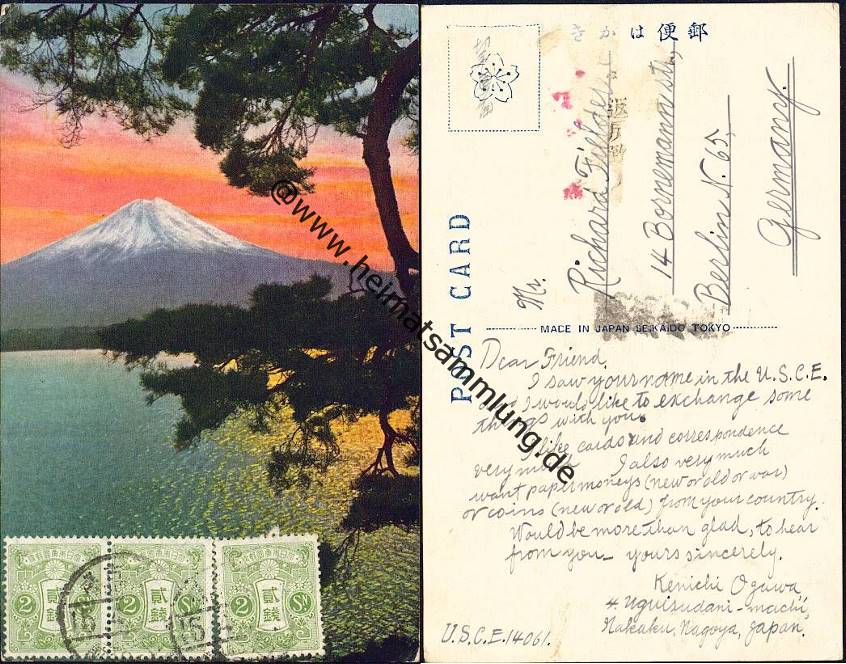 @www.heimatsammlung.de
2 貳錢 Sn
2 貳錢 Sn
2 貳錢 Sn
15
15
きかは便郵
POST CARD
Mr.
Richard
14 Bornemannstr.,
Berlin N. 65,
Germany.
MADE IN JAPAN SEIKAIDO TOKYO
Dear Friend,
I saw your name in the U.S.C.E.
and I would like to exchange some
things with you.
I like cards and correspondence
very much. I also very much
want paper moneys (new or old or war)
or coins (new or old) from your country.
Would be more than glad, to hear
from you_ yours sincerely.
Kenichi Ogawa
4 Uguisudani-machi,
Nakaku, Nagoya, Japan.
U.S.C.E. 14061.